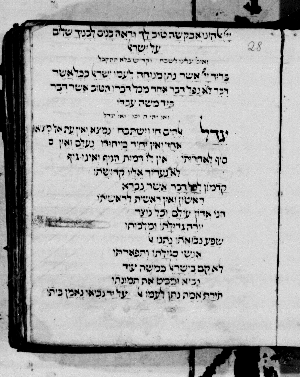 יי אלהינו אבקשה טוב לך וראה בנים לבניך שלום
על ישראל
ברוך יי אשר נתן מנוחה לעמו ישראל ככל אשר
דבר לא נפל דבר אחד מכל דברו הטוב אשר דבר
ביד משה עבדו
יגדל אלהים חי וישתבח נמצא ואין עת אל מציאותו
אחד ואין יחיד כיחודו נעלם ואין סוף
לאחדותו אין לו דמות הגוף ואינו גוף
לא נערוך אליו קדושתו
קדמון לכל דבר אשר נברא
ראשון ואין ראשית לראשיתו
הנו אדון עולם וכל נוצר
יורה גדולתו ומלכותו
שפע נבואתו נתנו
אנשי סגולתו ותפארתו
לא קם בישראל כמשה עוד
נביא ומביט את תמונתו
תורת אמת נתן לעמו אל על יד נביאו נאמן ביתו
28